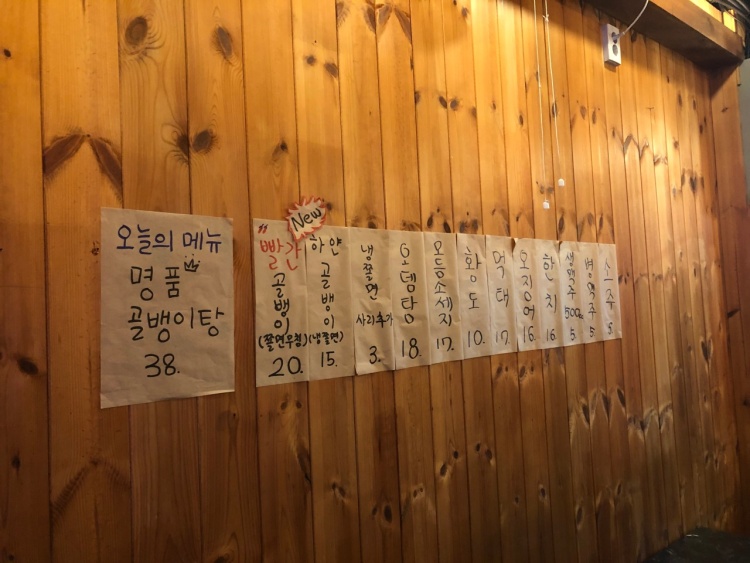 오늘의 메뉴
명품
골뱅이탕
38.
New
"빨간
골뱅이
(쫄면무침)
20.
하얀
골뱅이
(냉쫄면)
15.
냉쫄면
사리추가
3.
오뎅탕
18.
모듬소세지
17.
황도
10.
먹태
17.
오징어
16.
한치
16.
생맥주
500cc
5
병맥주
5.
소주
5.